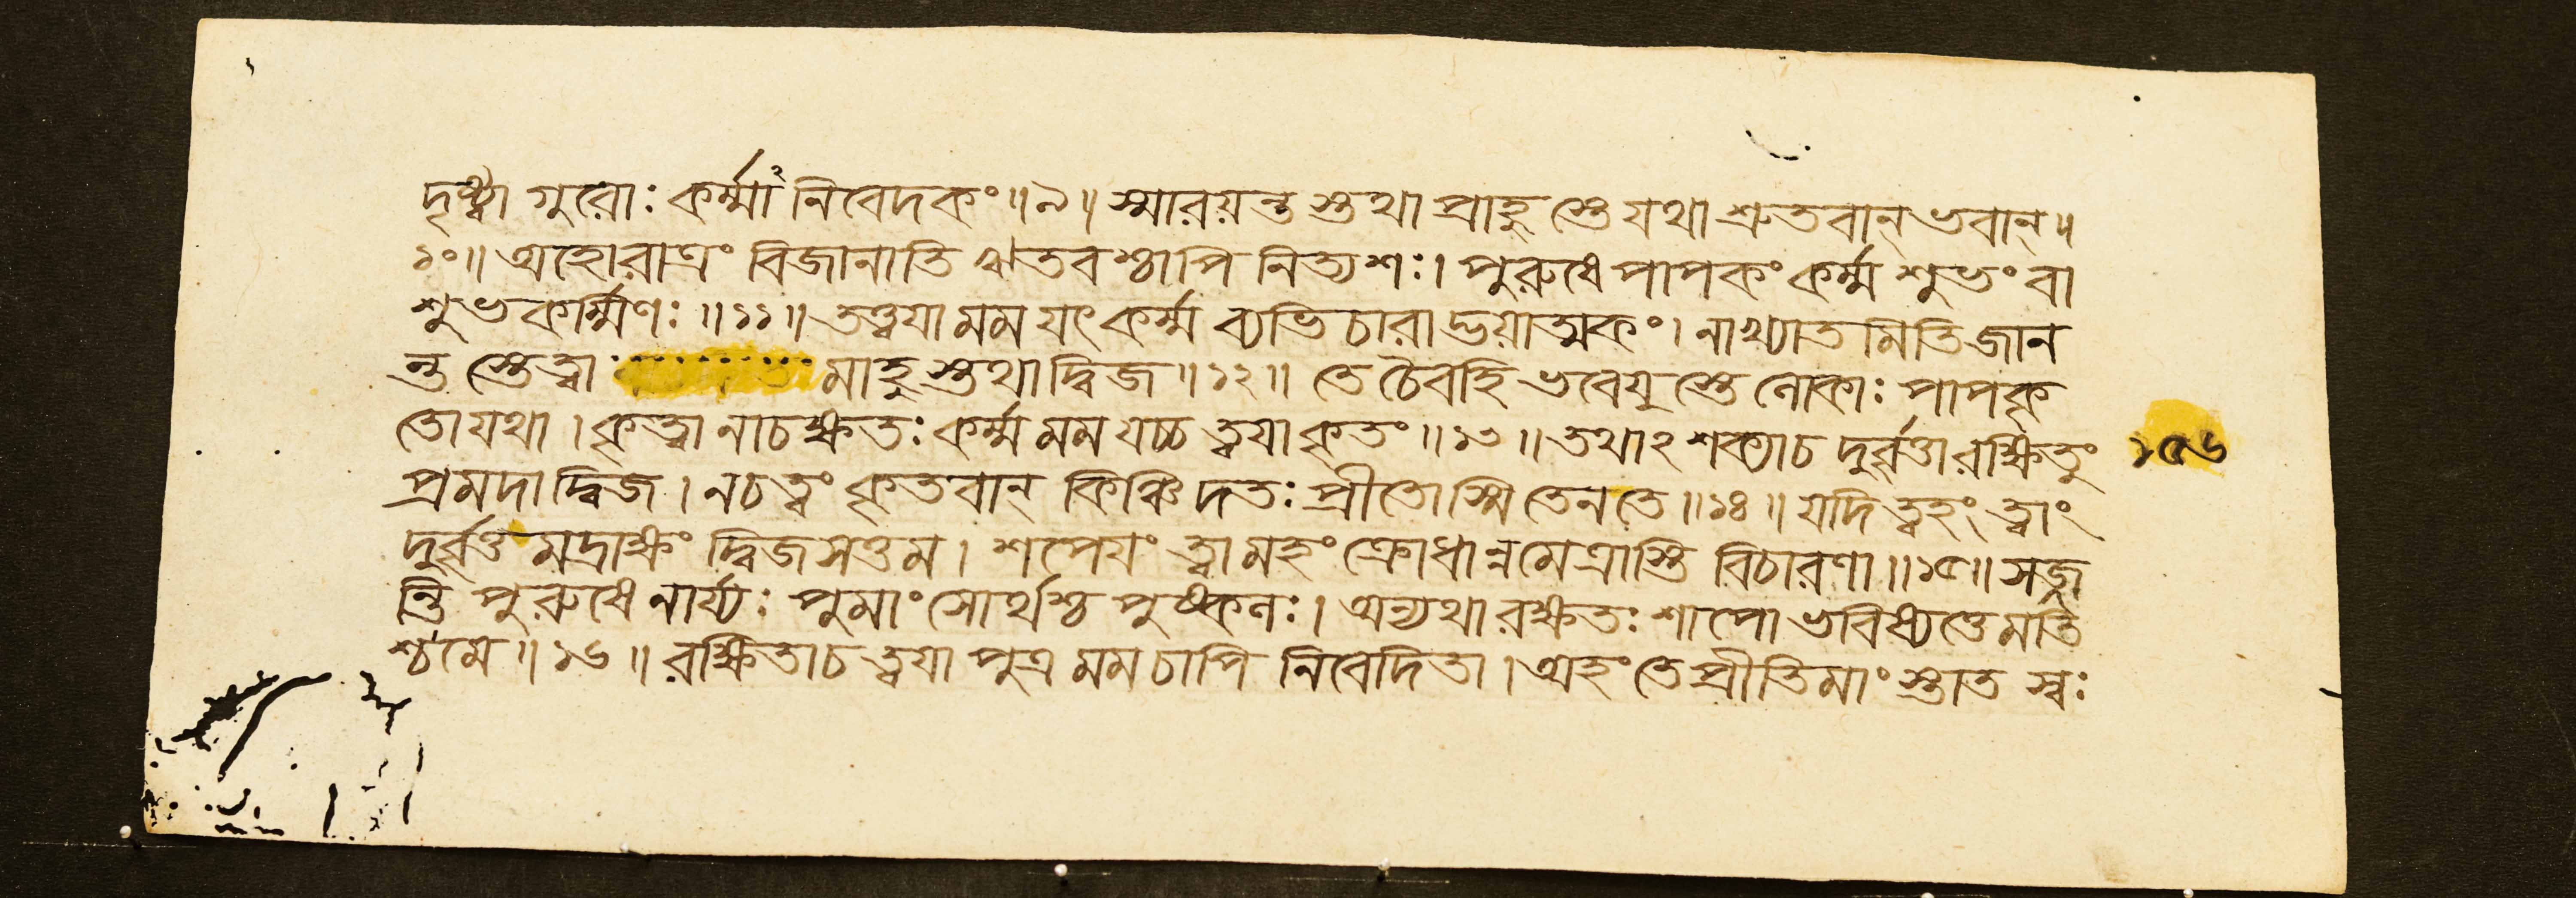 দৃষ্ট্বা গুরোঃ কর্ম্মাঽনিবেদকং॥৯॥ স্মারয়ন্তস্তথা প্রাহুস্তে যথা শ্রুতবান্ ভবান্॥
১০॥ অহোরাত্রং বিজানাতি ঋতবশ্চাপি নিত্যশঃ। পুরুষে পাপকং কর্ম্ম শুভং বা
শুভকর্ম্মিণঃ॥১১॥ তত্ত্বয়া মম যৎ কর্ম্ম ব্যভিচারাদ্ভয়াত্মকং। নাখ্যাতমিতি জান
ন্তস্তেত্বা মাহুস্তথা দ্বিজ॥১২॥ তে চৈবহি ভবেযুস্তে লোকাঃ পাপকৃ
তো যথা। কৃত্বা নাচক্ষতঃ কর্ম্ম মম যচ্চ ত্বয়া কৃতং॥১৩॥ তথাঽশক্যা চ দুর্ব্বৃত্তা রক্ষিতুং ১৫৬
প্রমদা দ্বিজ। নচ ত্বং কৃতবান্ কিঞ্চিদতঃ প্রীতোস্মি তেন তে॥১৪॥ যদি ত্বহং ত্বাং
দুর্ব্বৃত্তমদ্রাক্ষং দ্বিজসত্তম। শপেয়ং ত্বামহং ক্রোধান্নমেত্রাস্তি বিচারণা॥১৫॥ সজ্জ
ন্তি পুরুষে নার্য্যঃ পুমাংসোর্থশ্চ পুষ্কলঃ। অন্যথা রক্ষতঃ শাপো ভবিষ্যত্তে মতি
শ্চমে॥১৬॥ রক্ষিতাচ ত্বয়া পুত্র মম চাপি নিবেদিতা। অহং তে প্রীতিমাংস্তাত স্বঃ